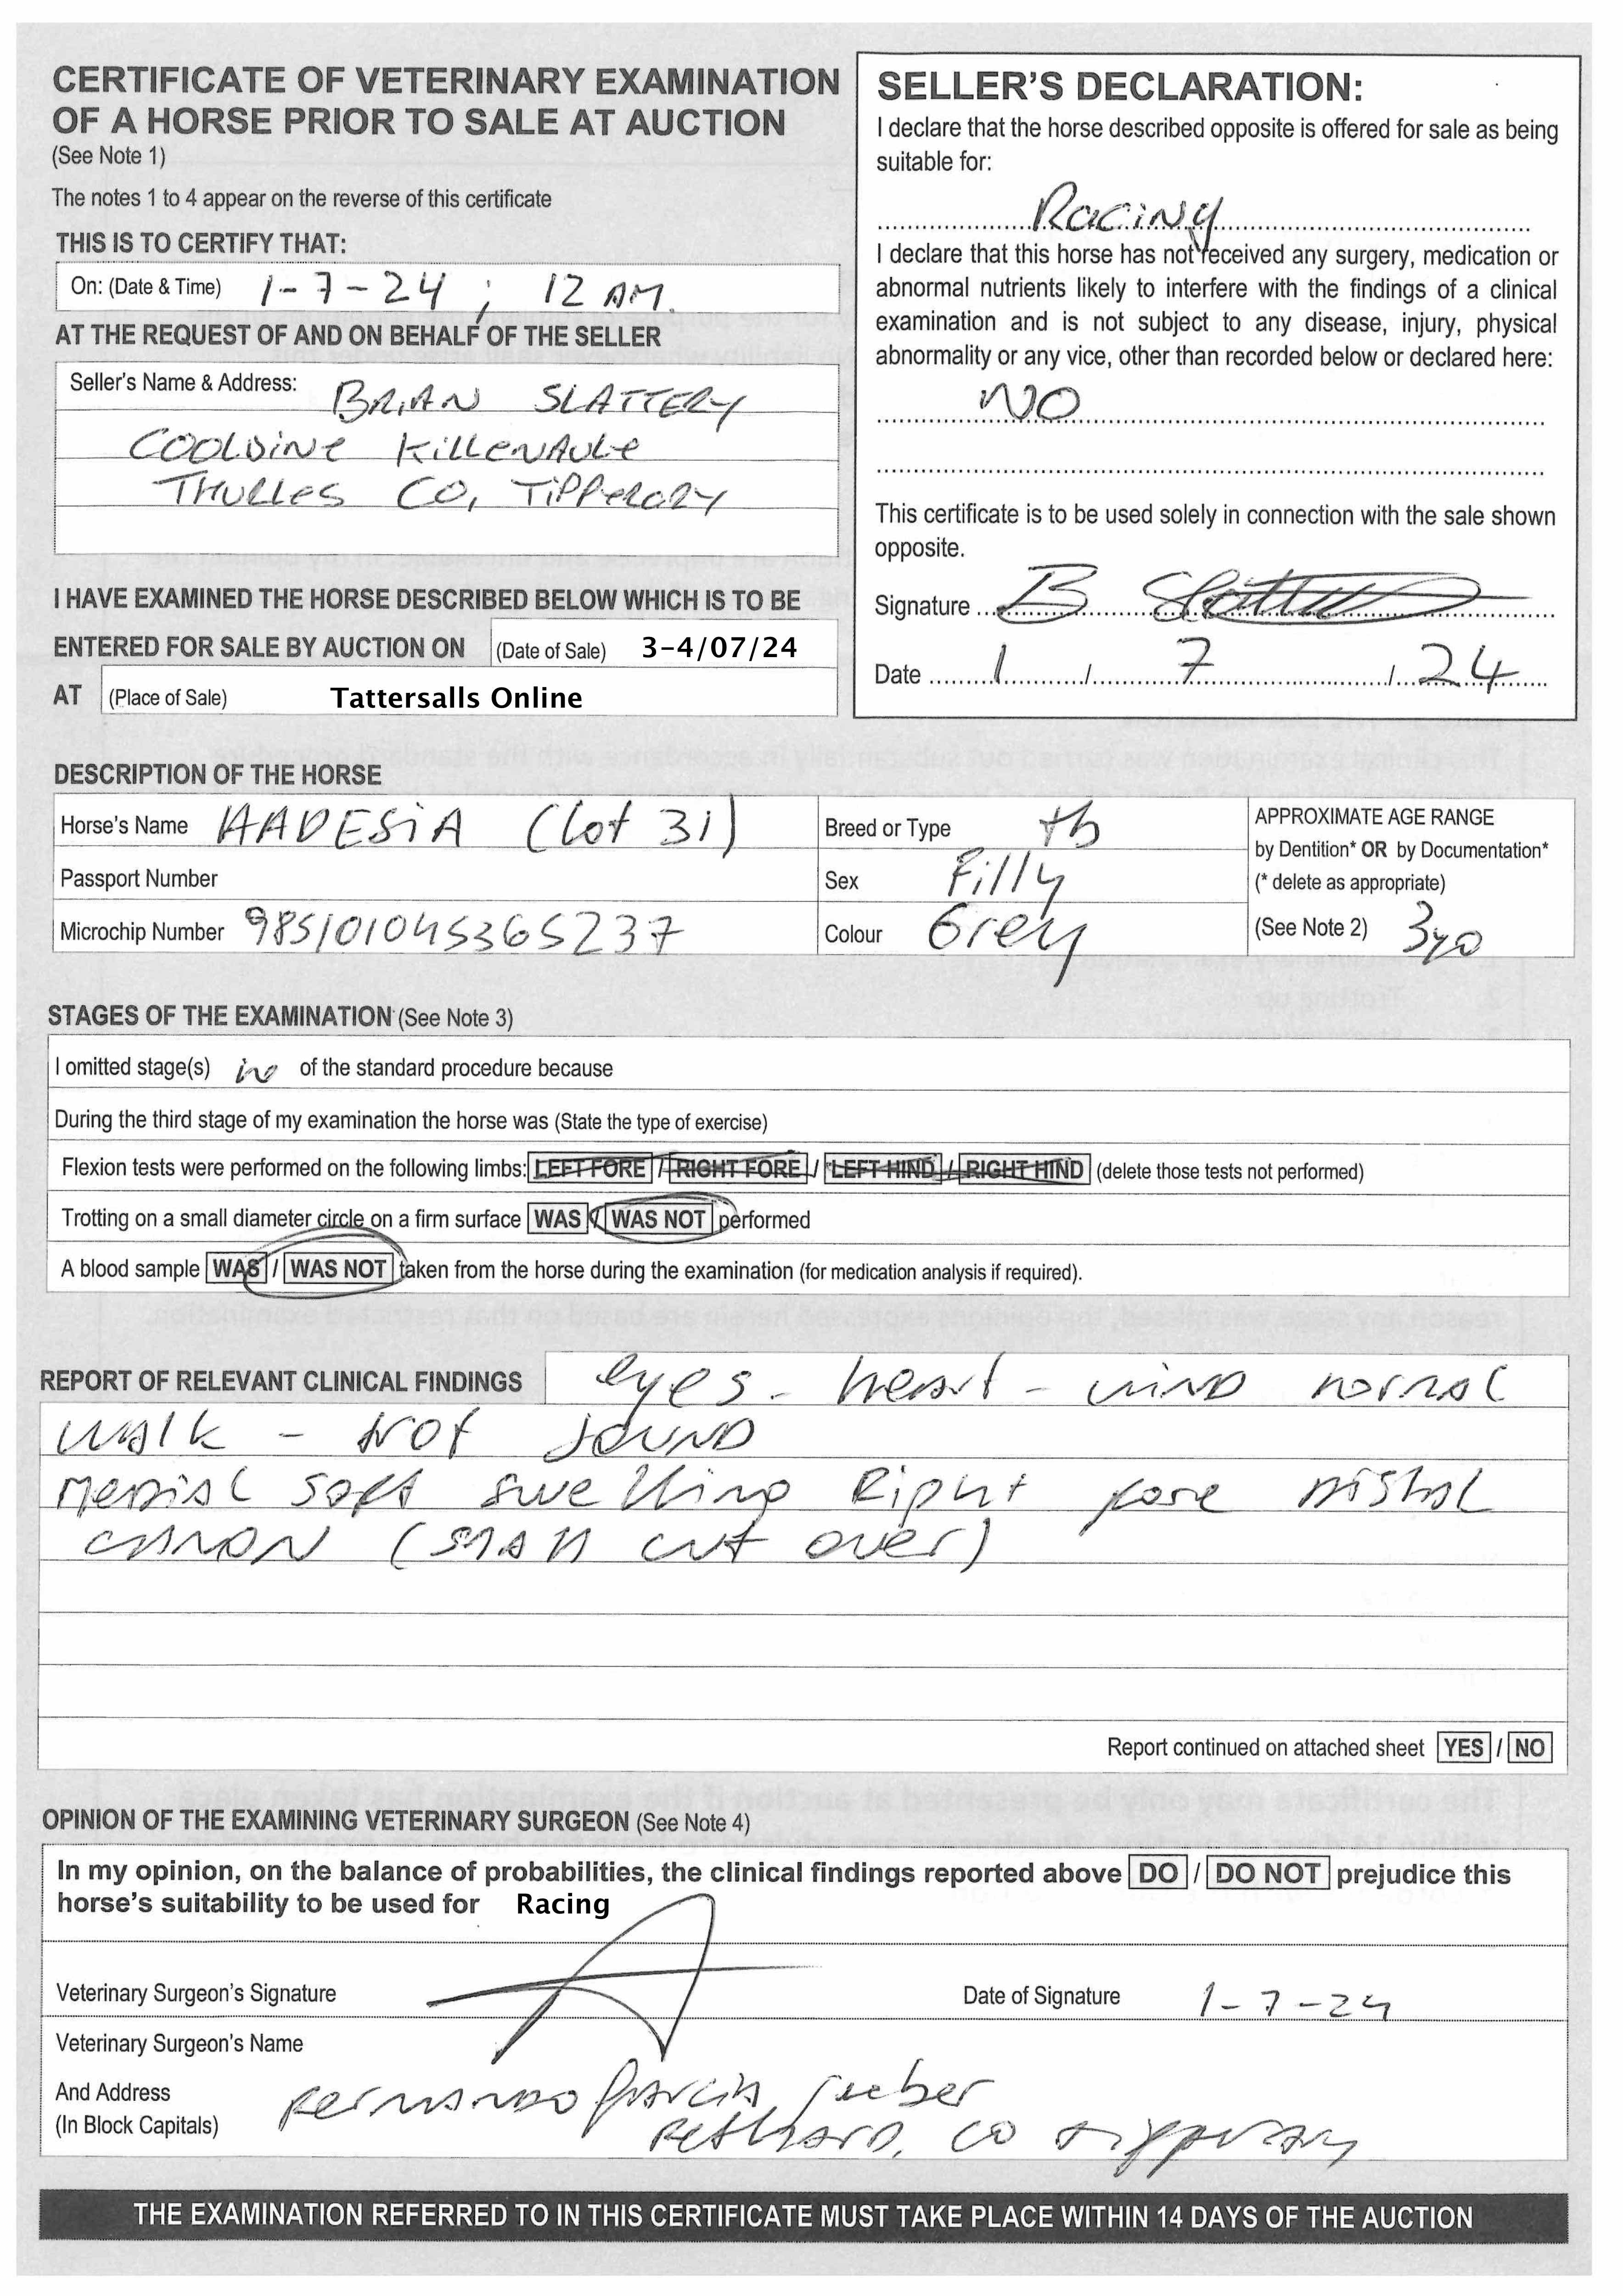 CERTIFICATE OF VETERINARY EXAMINATION
OF A HORSE PRIOR TO SALE AT AUCTION
(See Note 1)
The notes 1 to 4 appear on the reverse of this certificate
THIS IS TO CERTIFY THAT:
On: (Date & Time) 1-7-24 ; 12 AM.
AT THE REQUEST OF AND ON BEHALF OF THE SELLER
Seller's Name & Address: BRIAN SLATTERY
COOLDINE KILLENAULE
THURLES CO, TIPPERARY
I HAVE EXAMINED THE HORSE DESCRIBED BELOW WHICH IS TO BE
ENTERED FOR SALE BY AUCTION ON (Date of Sale) 3-4/07/24
AT (Place of Sale) Tattersalls Online
SELLER'S DECLARATION:
I declare that the horse described opposite is offered for sale as being
suitable for:
Racing
I declare that this horse has not received any surgery, medication or
abnormal nutrients likely to interfere with the findings of a clinical
examination and is not subject to any disease, injury, physical
abnormality or any vice, other than recorded below or declared here:
NO
This certificate is to be used solely in connection with the sale shown
opposite.
Signature B Slattery
Date 1 / 7 / 24
DESCRIPTION OF THE HORSE
Horse's Name HADESIA (Lot 31)
Breed or Type tb
APPROXIMATE AGE RANGE
by Dentition* OR by Documentation*
(* delete as appropriate)
(See Note 2) 3yo
Passport Number
Sex Filly
Microchip Number 985101045365237
Colour Grey
STAGES OF THE EXAMINATION (See Note 3)
I omitted stage(s) of the standard procedure because
During the third stage of my examination the horse was (State the type of exercise)
Flexion tests were performed on the following limbs: LEFT FORE / RIGHT FORE / LEFT HIND / RIGHT HIND (delete those tests not performed)
Trotting on a small diameter circle on a firm surface WAS / WAS NOT performed
A blood sample WAS / WAS NOT taken from the horse during the examination (for medication analysis if required).
REPORT OF RELEVANT CLINICAL FINDINGS eyes - heart - wind normal
walk - trot sound
medial soft swelling Right fore distal
cannon (small cut over)
Report continued on attached sheet YES / NO
OPINION OF THE EXAMINING VETERINARY SURGEON (See Note 4)
In my opinion, on the balance of probabilities, the clinical findings reported above DO / DO NOT prejudice this
horse's suitability to be used for Racing
Veterinary Surgeon's Signature
Date of Signature 1-7-24
Veterinary Surgeon's Name
And Address
(In Block Capitals)
Fernando Garcia
Fethard, co tipperary
THE EXAMINATION REFERRED TO IN THIS CERTIFICATE MUST TAKE PLACE WITHIN 14 DAYS OF THE AUCTION